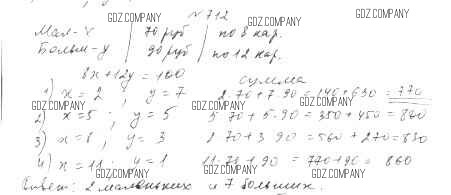 № 712
Мал-х | 70 руб | по 8 кар.
Больш-у | 90 руб | по 12 кар.
8x+12y=100
сумма
1) x=2 ; y=7 2·70+7·90=140+630=770
2) x=5 ; y=5 5·70+5·90=350+450=800
3) x=8 ; y=3 8·70+3·90=560+270=830
4) x=11 ; y=1 11·70+1·90=770+90=860
Ответ: 2 маленьких и 7 больших.
GDZ.COMPANY
GDZ.COMPANY
GDZ.COMPANY
GDZ.COMPANY
GDZ.COMPANY
GDZ.COMPANY
GDZ.COMPANY
GDZ.COMPANY
GDZ.COMPANY
GDZ.COMPANY
GDZ.COMPANY
GDZ.COMPANY